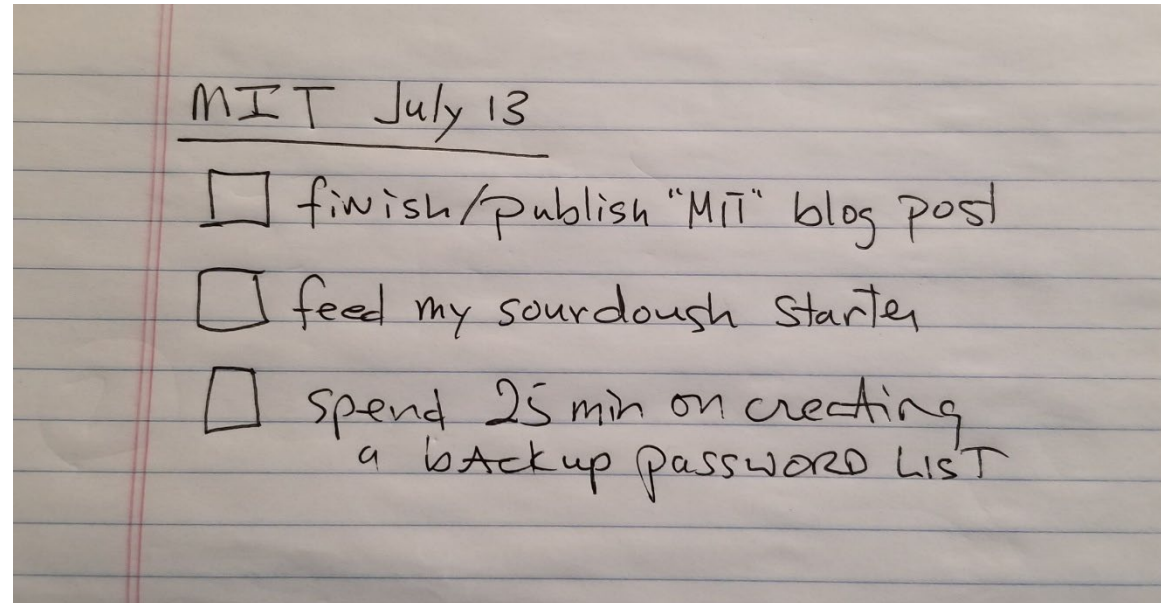 MIT July 13
finish/publish "MIT" blog post
feed my sourdough starter
spend 25 min on creating
a bAckup passWORD LIST